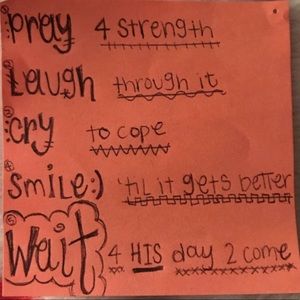 pray 4 strength
Laugh through it
cry to cope
smile:) 'til it gets better
Wait 4 HIS day 2 come